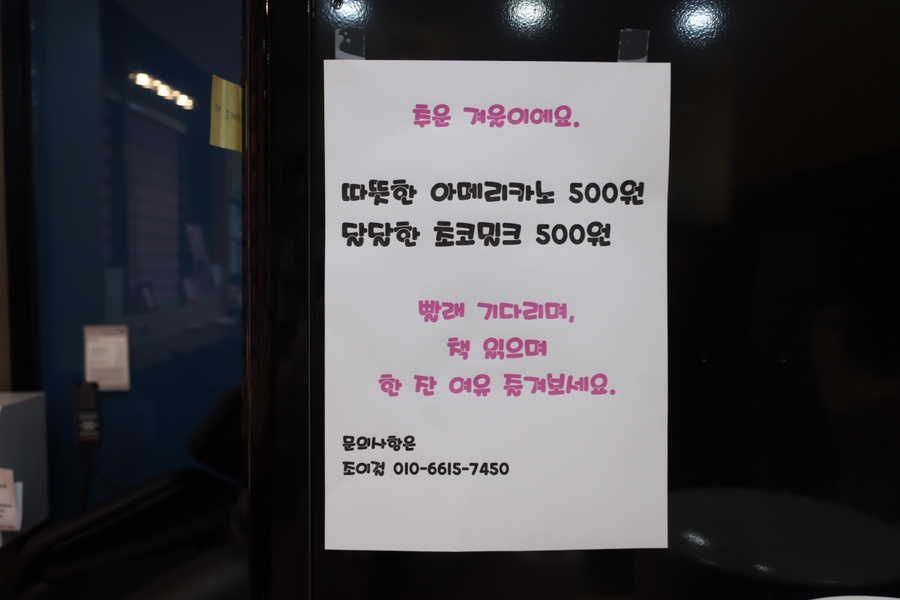 추운 겨울이에요.
따뜻한 아메리카노 500원
달달한 초코밀크 500원
빨래 기다리며,
책 읽으며
한 잔 여유 즐겨보세요.
문의사항은
조이검 010-6615-7450